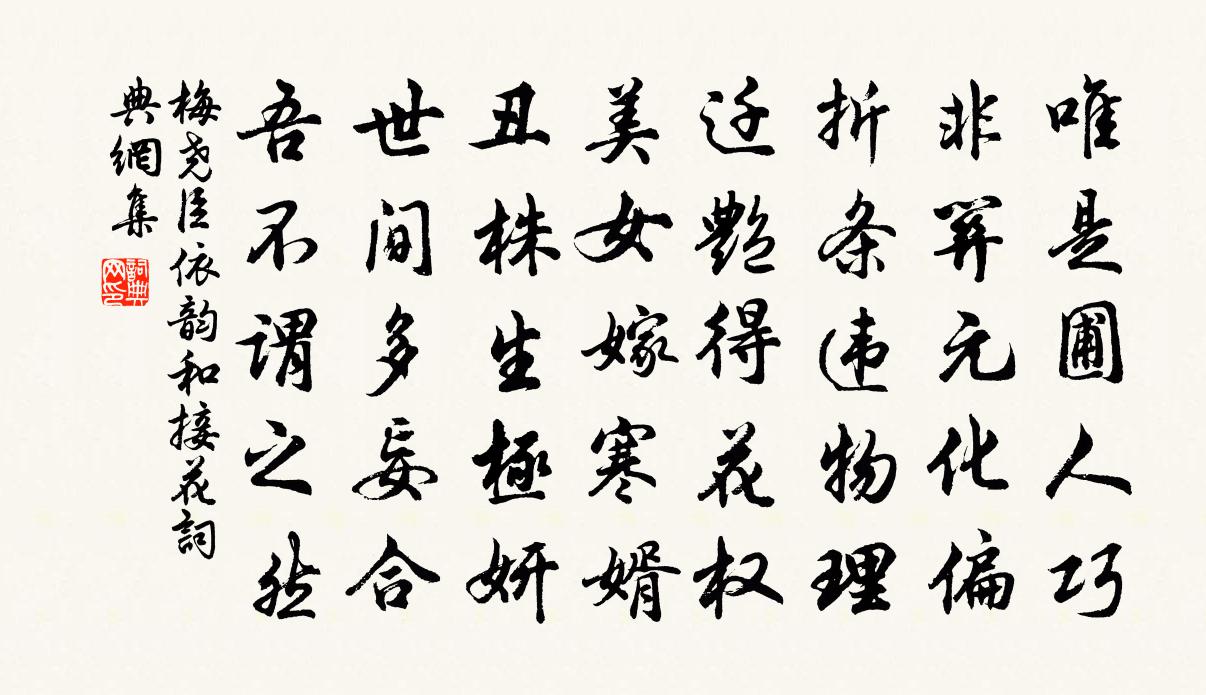 唯是圃人巧
非关元化偏
折条违物理
迁艷得花权
美女嫁寒婿
丑株生極妍
世间多妄合
吾不謂之然
梅尧臣依韵和接花詞
典網集
詞典
网印